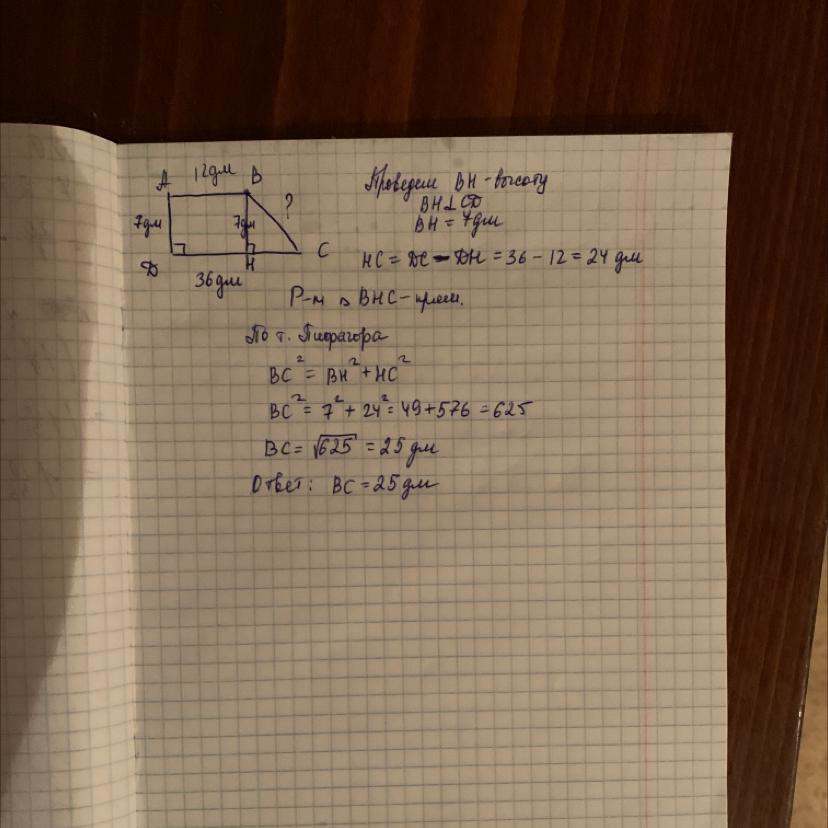 12дм
A B
7дм 7дм ?
D H C
36дм
Проведем BH - высоту
BH ⊥ CD
BH = 7дм
HC = DC - DH = 36 - 12 = 24 дм
Р-м △ BHC - прям.
По т. Пифагора
BC² = BH² + HC²
BC² = 7² + 24² = 49 + 576 = 625
BC = √625 = 25 дм
Ответ: BC = 25 дм